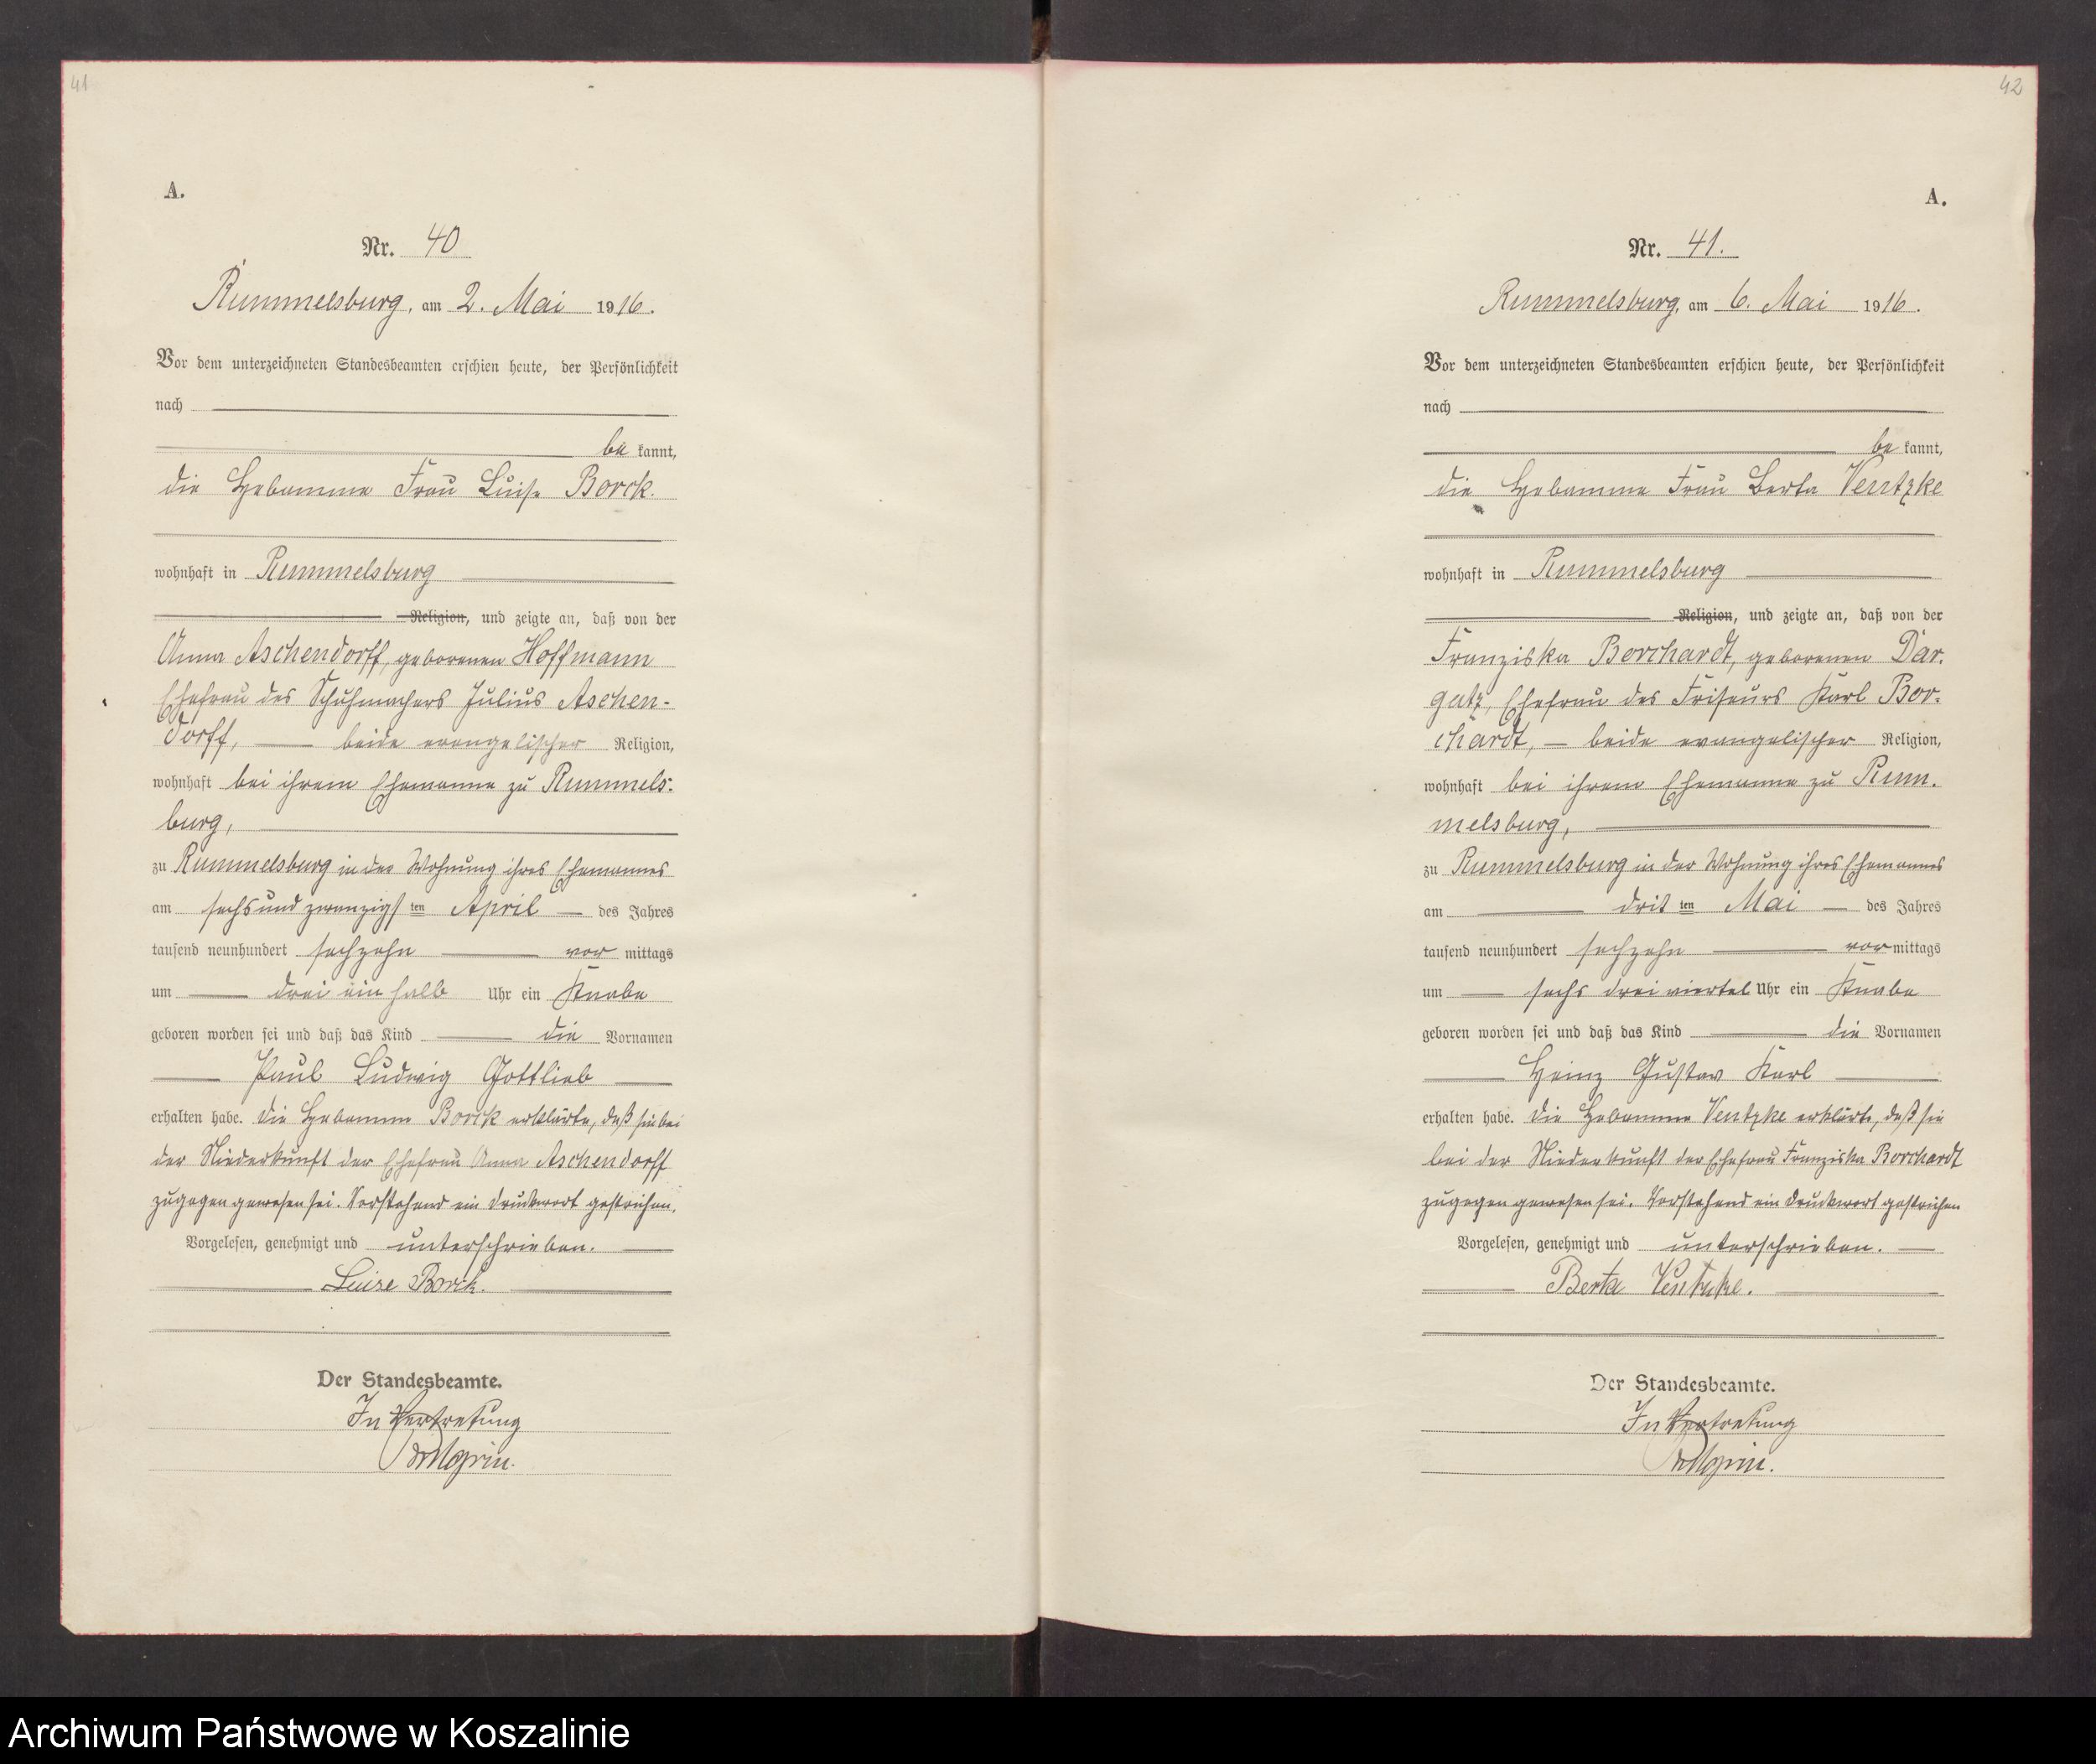 41
A.
Nr. 40
Rummelsburg, am 2. Mai 1916.
Vor dem unterzeichneten Standesbeamten erschien heute, der Persönlichkeit
nach
be kannt,
die Hebamme Frau Luise Borck.
wohnhaft in Rummelsburg
Religion, und zeigte an, daß von der
Anna Aschendorff, geborenen Hoffmann
Ehefrau des Schuhmachers Julius Aschen-
dorff, beide evangelischer Religion,
wohnhaft bei ihrem Ehemanne zu Rummels-
burg,
zu Rummelsburg in der Wohnung ihres Ehemannes
am sechsundzwanzigsten April des Jahres
tausend neunhundert sechzehn vor mittags
um drei ein halb Uhr ein Knabe
geboren worden sei und daß das Kind die Vornamen
Paul Ludwig Gottlieb
erhalten habe. Die Hebamme Borck erklärte, daß sie bei
der Niederkunft der Ehefrau Anna Aschendorff
zugegen gewesen sei. Vorstehend ein Druckwort gestrichen.
Vorgelesen, genehmigt und unterschrieben.
Luise Borck.
Der Standesbeamte.
In Vertretung
42
A.
Nr. 41.
Rummelsburg, am 6. Mai 1916.
Vor dem unterzeichneten Standesbeamten erschien heute, der Persönlichkeit
nach
be kannt,
die Hebamme Frau Berta Ventzke
wohnhaft in Rummelsburg
Religion, und zeigte an, daß von der
Franziska Borchardt, geborenen Dar-
gatz, Ehefrau des Friseurs Karl Bor-
chardt, beide evangelischer Religion,
wohnhaft bei ihrem Ehemanne zu Rum-
melsburg,
zu Rummelsburg in der Wohnung ihres Ehemannes
am dritten Mai des Jahres
tausend neunhundert sechzehn vor mittags
um sechs dreiviertel Uhr ein Knabe
geboren worden sei und daß das Kind die Vornamen
Heinz Gustav Karl
erhalten habe. Die Hebamme Ventzke erklärte, daß sie
bei der Niederkunft der Ehefrau Franziska Borchardt
zugegen gewesen sei. Vorstehend ein Druckwort gestrichen
Vorgelesen, genehmigt und unterschrieben.
Berta Ventzke.
Der Standesbeamte.
In Vertretung
Archiwum Państwowe w Koszalinie